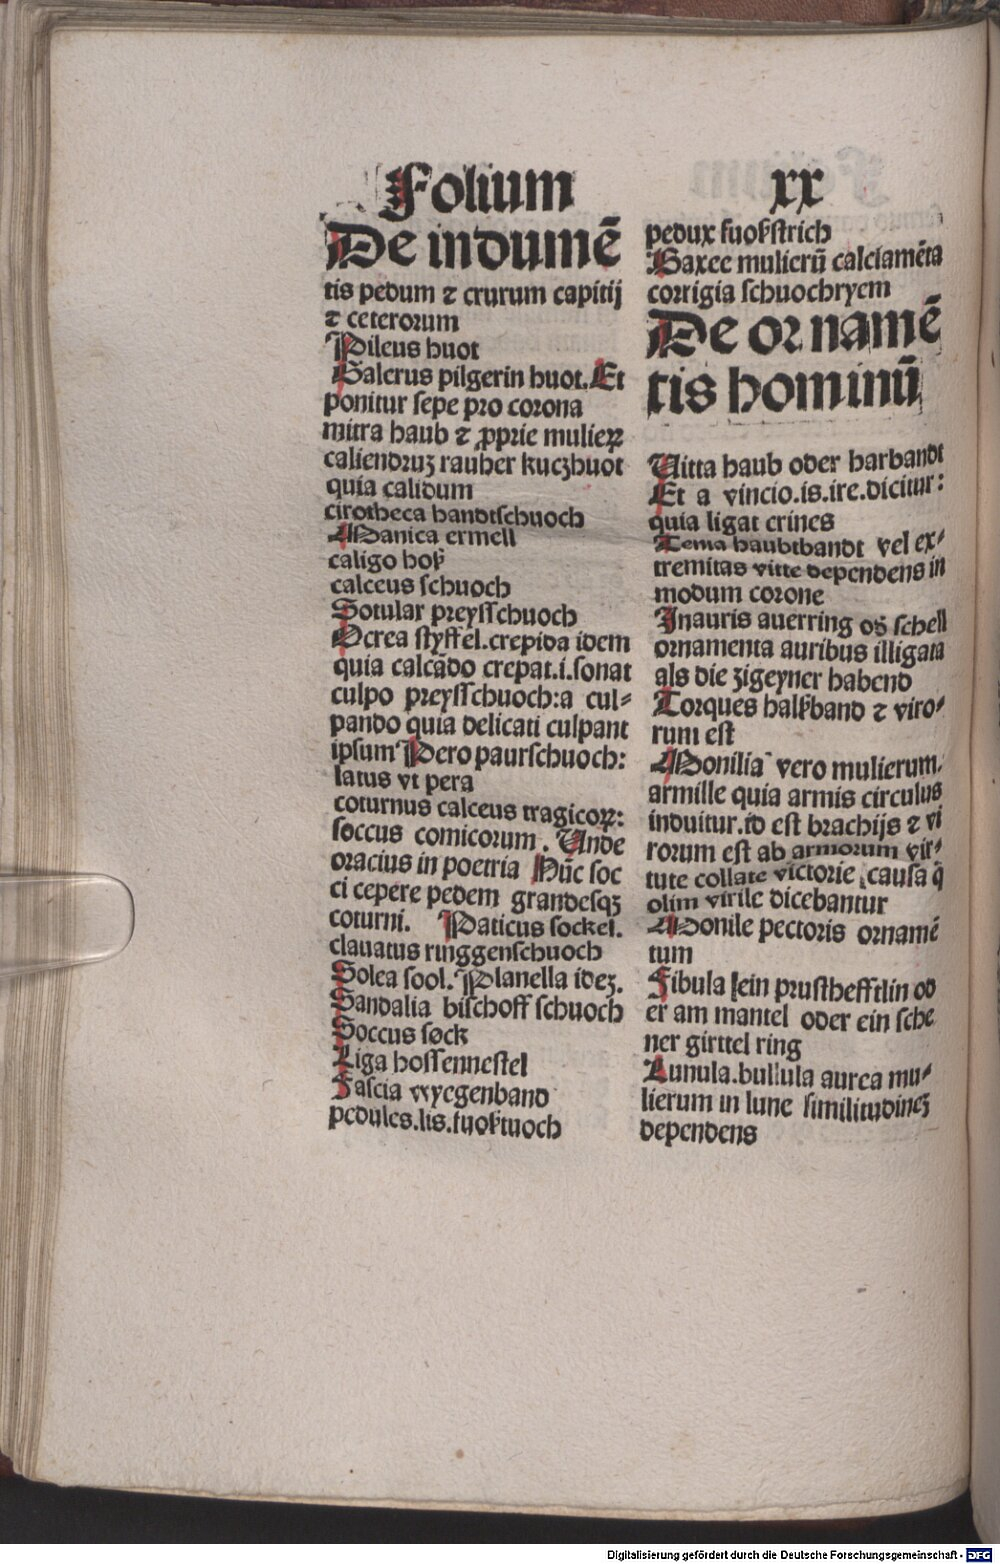 Folium
De indumē
tis pedum ⁊ crurum capitij
⁊ ceterorum
Pileus huot
Galerus pilgerin huot. Et
ponitur sepe pro corona
mitra haub ⁊ ꝓprie mulieꝝ
caliendruʒ rauher kuczhuot
quia calidum
cirotheca handtschuoch
Manica ermell
caligo hoß
calceus schuoch
Sotular preyssschuoch
Ocrea styffel.crepida idem
quia calcādo crepat.i.sonat
culpo preyssschuoch:a cul⸗
pando quia delicati culpant
ipsum Pero paurschuoch:
latus vt pera
coturnus calceus tragicoꝝ:
soccus comicorum. Unde
oracius in poetria Hūc soc
ci cepere pedem grandesqʒ
coturni. Paticus sockel.
clauatus ringgenschuoch
Solea sool. Planella ideʒ.
Sandalia bischoff schuoch
Soccus søck
Liga hossennestel
Fascia wyegenband
pedules.lis.fuoßtuoch
xx
pedux fuoßstrich
Baxee mulierū calciamēta
corrigia schuochryem
De ornamē
tis hominū
Uitta haub oder harbandt
Et a vincio.is.ire.dicitur:
quia ligat crines
Tenia haubtbandt vel ex⸗
tremitas vitte dependens in
modum corone
Inauris auerring od̄ schell
ornamenta auribus illigata
als die zigeyner habend
Torques halßband ⁊ viro⸗
rum est
Monilia vero mulierum.
armille quia armis circulus
induitur.id est brachijs ⁊ vi
rorum est ab armorum vir⸗
tute collate victorie causa q̄
olim virile dicebantur
Monile pectoris ornamē
tum
Fibula ein prusthefftlin od
er am mantel oder ein sche
ner girttel ring
Lunula.bullula aurea mu⸗
lierum in lune similitudineʒ
dependens
Digitalisierung gefördert durch die Deutsche Forschungsgemeinschaft - DFG